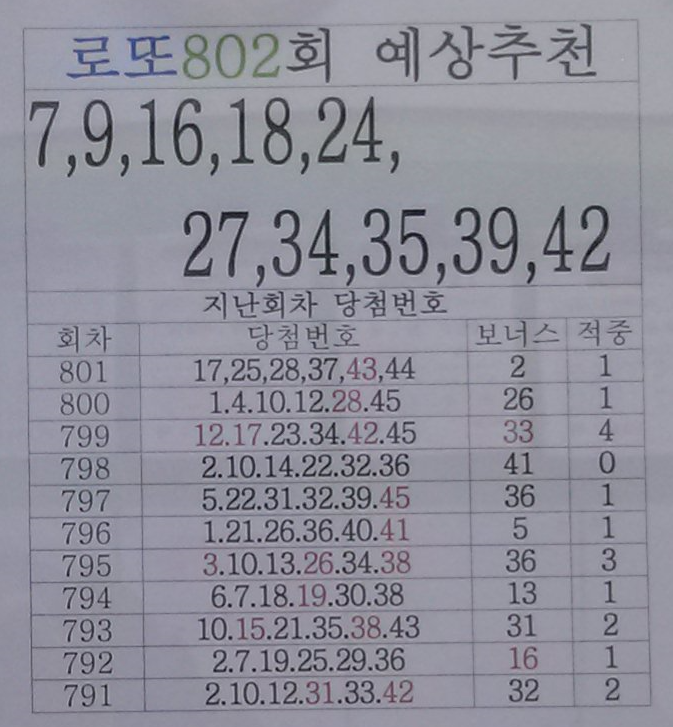 로또802회 예상추천
7,9,16,18,24,
27,34,35,39,42
지난회차 당첨번호
회차 당첨번호 보너스 적중
801 17,25,28,37,43,44 2 1
800 1.4.10.12.28.45 26 1
799 12.17.23.34.42.45 33 4
798 2.10.14.22.32.36 41 0
797 5.22.31.32.39.45 36 1
796 1.21.26.36.40.41 5 1
795 3.10.13.26.34.38 36 3
794 6.7.18.19.30.38 13 1
793 10.15.21.35.38.43 31 2
792 2.7.19.25.29.36 16 1
791 2.10.12.31.33.42 32 2